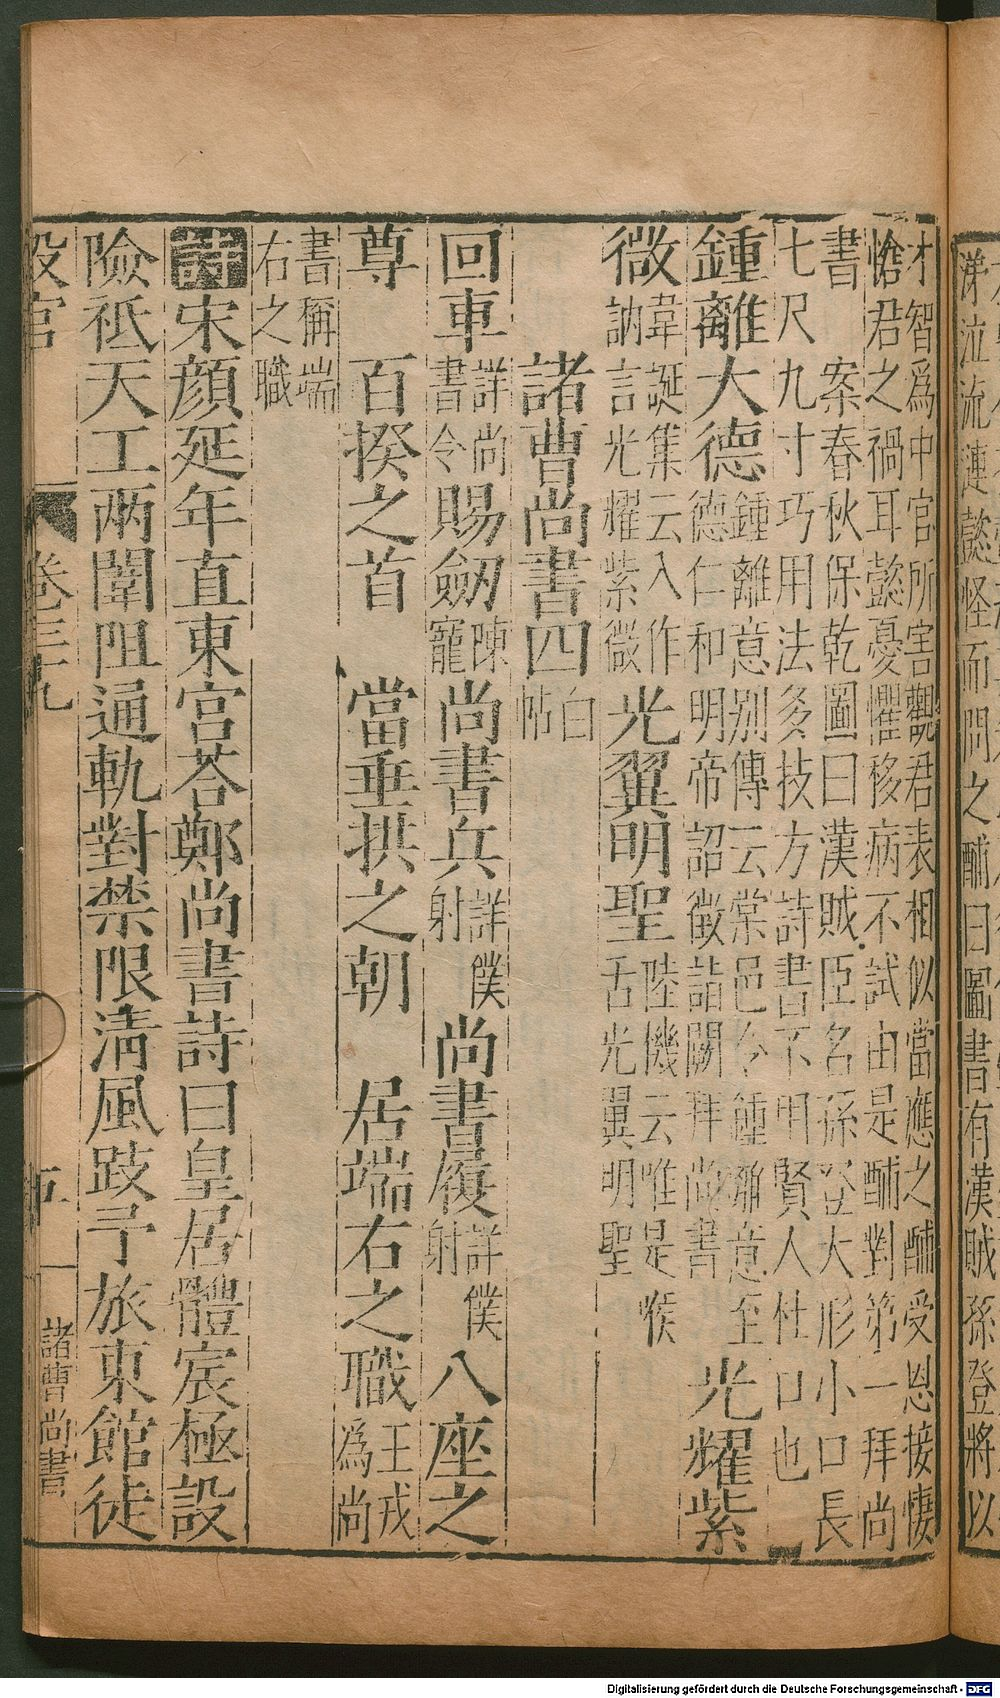 才智爲中宮所害觀君表相似當應之酺受恩接悽
愴君之禍耳懿憂懼移病不試由是酺對第一拜尚
書　案春秋保乾圖曰漢賊臣名孫登大形小口長
七尺九寸巧用法多技方詩書不明賢人杜口也
鍾離大德鍾離意別傳云棠邑令鍾離意至
德仁和明帝詔徵詣闕拜尚書光耀紫
微韋誕集云入作
訥言光耀紫微光翼明聖陸機云唯是喉
舌光翼明聖
諸曹尚書四白
帖
回車詳尚
書令賜劒陳
寵尚書兵詳僕
射尚書履詳僕
射八座之
尊　百揆之首　當垂拱之朝　居端右之職王戎
爲尚
書稱端
右之職
詩宋顏延年直東宮荅鄭尚書詩曰皇居體宸極設
險祗天工兩闈阻通軌對禁限清風跂予旅東館徒
設官
卷三九
五
諸曹尚書
涕泣流漣懿怪而問之酺曰圖書有漢賊孫登將以
Digitalisierung gefördert durch die Deutsche Forschungsgemeinschaft - DFG